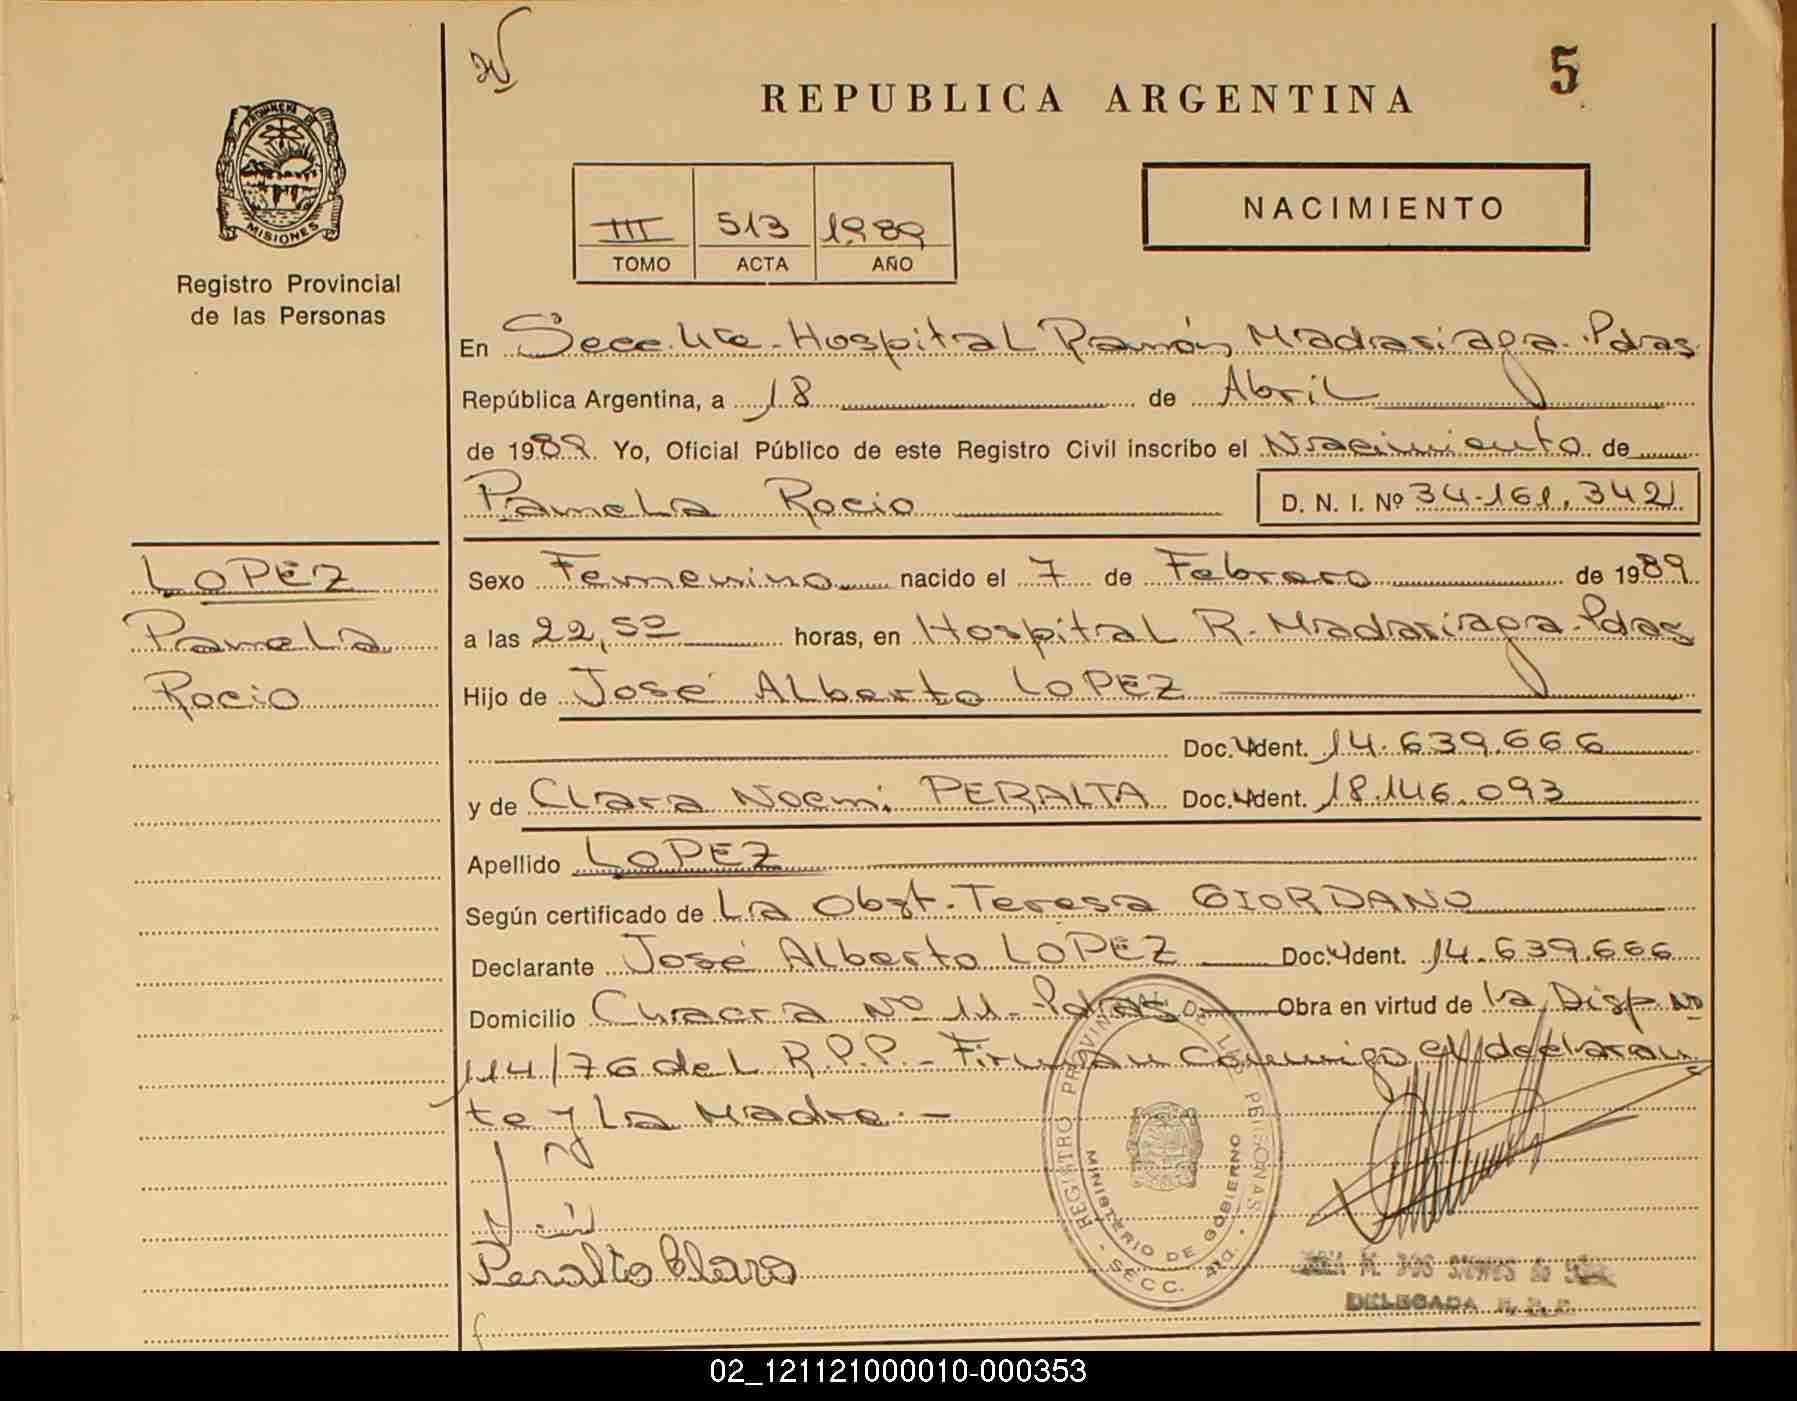 5
REPUBLICA ARGENTINA
NACIMIENTO
III 513 1989
TOMO ACTA AÑO
PROVINCIA DE
MISIONES
Registro Provincial
de las Personas
En Secc. 4ta - Hospital Ramón Madariaga - Pdas
República Argentina, a 18 de Abril
de 1989. Yo, Oficial Público de este Registro Civil inscribo el Nacimiento de
Pamela Rocio D. N. I. Nº 34.161.342
LOPEZ
Pamela
Rocio
Sexo Femenino nacido el 7 de Febrero de 1989
a las 22,50 horas, en Hospital R. Madariaga - Pdas
Hijo de José Alberto LOPEZ
Doc. Ident. 14.639.666
y de Clara Noemi PERALTA Doc. Ident. 18.146.093
Apellido LOPEZ
Según certificado de La Obst. Teresa GIORDANO
Declarante José Alberto LOPEZ Doc. Ident. 14.639.666
Domicilio Chacra Nº 11 - Pdas Obra en virtud de la Disp. Nº
114/76 del R.P.P. - Firman conmigo el declaran
te y La Madre. -
REGISTRO PROVINCIAL DE LAS PERSONAS
MINISTERIO DE GOBIERNO
SECC. 4ta.
Peralta Clara
DELEGADA
02_121121000010-000353